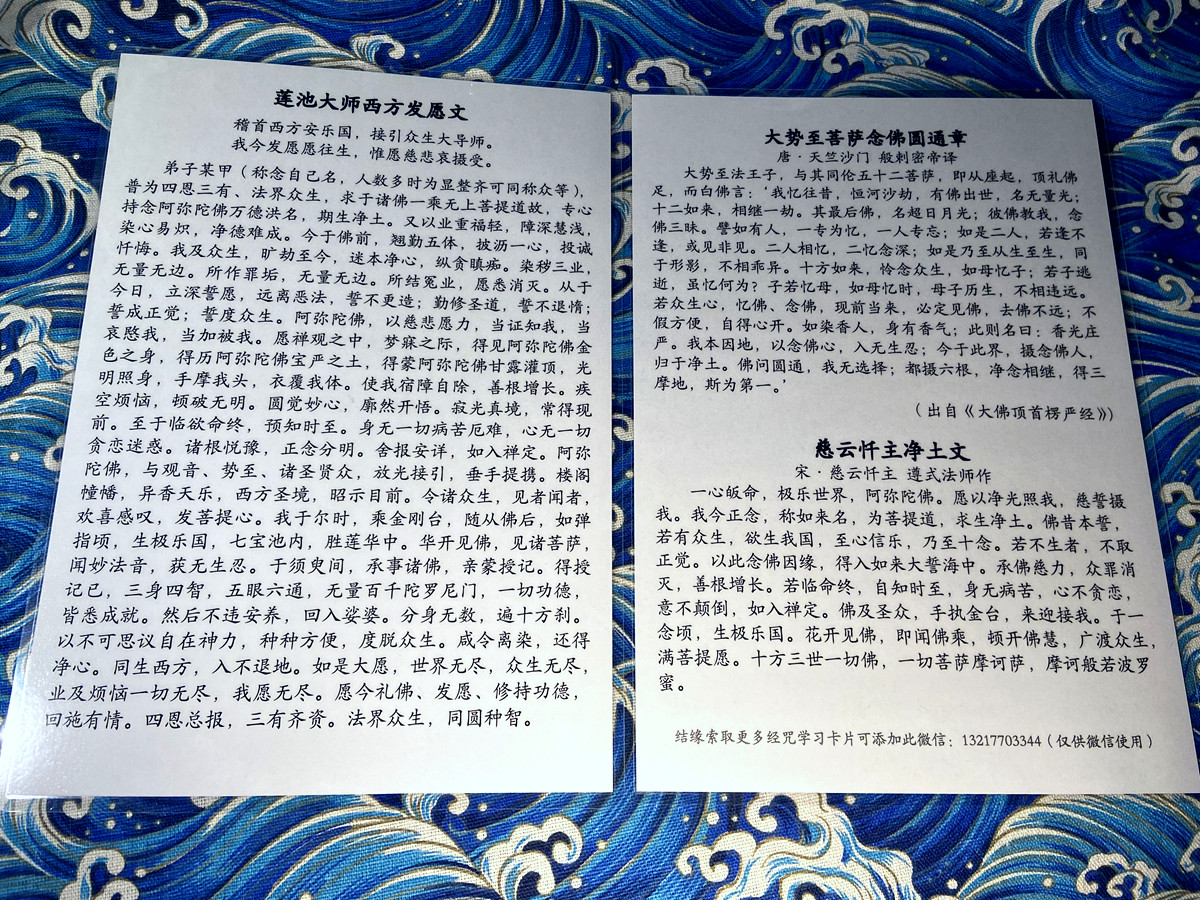 莲池大师西方发愿文
稽首西方安乐国，接引众生大导师。
我今发愿愿往生，惟愿慈悲哀摄受。
弟子某甲（称念自己名，人数多时为显整齐可同称众等），
普为四恩三有、法界众生，求于诸佛一乘无上菩提道故，专心
持念阿弥陀佛万德洪名，期生净土。又以业重福轻，障深慧浅，
染心易炽，净德难成。今于佛前，翘勤五体，披沥一心，投诚
忏悔。我及众生，旷劫至今，迷本净心，纵贪瞋痴。染秽三业，
无量无边。所作罪垢，无量无边。所结冤业，愿悉消灭。从于
今日，立深誓愿，远离恶法，誓不更造；勤修圣道，誓不退惰；
誓成正觉；誓度众生。阿弥陀佛，以慈悲愿力，当证知我，当
哀愍我，当加被我。愿禅观之中，梦寐之际，得见阿弥陀佛金
色之身，得历阿弥陀佛宝严之土，得蒙阿弥陀佛甘露灌顶，光
明照身，手摩我头，衣覆我体。使我宿障自除，善根增长。疾
空烦恼，顿破无明。圆觉妙心，廓然开悟。寂光真境，常得现
前。至于临欲命终，预知时至。身无一切病苦厄难，心无一切
贪恋迷惑。诸根悦豫，正念分明。舍报安详，如入禅定。阿弥
陀佛，与观音、势至、诸圣贤众，放光接引，垂手提携。楼阁
幢幡，异香天乐，西方圣境，昭示目前。令诸众生，见者闻者，
欢喜感叹，发菩提心。我于尔时，乘金刚台，随从佛后，如弹
指顷，生极乐国，七宝池内，胜莲华中。华开见佛，见诸菩萨，
闻妙法音，获无生忍。于须臾间，承事诸佛，亲蒙授记。得授
记已，三身四智，五眼六通，无量百千陀罗尼门，一切功德，
皆悉成就。然后不违安养，回入娑婆。分身无数，遍十方刹。
以不可思议自在神力，种种方便，度脱众生。咸令离染，还得
净心。同生西方，入不退地。如是大愿，世界无尽，众生无尽，
业及烦恼一切无尽，我愿无尽。愿今礼佛、发愿、修持功德，
回施有情。四恩总报，三有齐资。法界众生，同圆种智。
大势至菩萨念佛圆通章
唐·天竺沙门 般刺密帝译
大势至法王子，与其同伦五十二菩萨，即从座起，顶礼佛
足，而白佛言：‘我忆往昔，恒河沙劫，有佛出世，名无量光；
十二如来，相继一劫。其最后佛，名超日月光；彼佛教我，念
佛三昧。譬如有人，一专为忆，一人专忘；如是二人，若逢不
逢，或见非见。二人相忆，二忆念深；如是乃至从生至生，同
于形影，不相乖异。十方如来，怜念众生，如母忆子；若子逃
逝，虽忆何为？子若忆母，如母忆时，母子历生，不相违远。
若众生心，忆佛、念佛，现前当来，必定见佛，去佛不远；不
假方便，自得心开。如染香人，身有香气；此则名曰：香光庄
严。我本因地，以念佛心，入无生忍；今于此界，摄念佛人，
归于净土。佛问圆通，我无选择；都摄六根，净念相继，得三
摩地，斯为第一。’
（出自《大佛顶首楞严经》）
慈云忏主净土文
宋·慈云忏主 遵式法师作
一心皈命，极乐世界，阿弥陀佛。愿以净光照我，慈誓摄
我。我今正念，称如来名，为菩提道，求生净土。佛昔本誓，
若有众生，欲生我国，至心信乐，乃至十念。若不生者，不取
正觉。以此念佛因缘，得入如来大誓海中。承佛慈力，众罪消
灭，善根增长。若临命终，自知时至，身无病苦，心不贪恋，
意不颠倒，如入禅定。佛及圣众，手执金台，来迎接我。于一
念顷，生极乐国。花开见佛，即闻佛乘，顿开佛慧，广渡众生，
满菩提愿。十方三世一切佛，一切菩萨摩诃萨，摩诃般若波罗
蜜。
结缘索取更多经咒学习卡片可添加此微信：13217703344（仅供微信使用）